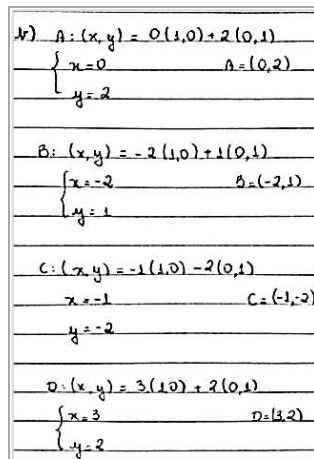 b) A: (x, y) = 0(1,0) + 2(0,1)
x = 0 A = (0,2)
y = 2
B: (x, y) = -2(1,0) + 1(0,1)
x = -2 B = (-2,1)
y = 1
C: (x, y) = -1(1,0) - 2(0,1)
x = -1 C = (-1,-2)
y = -2
D: (x, y) = 3(1,0) + 2(0,1)
x = 3 D = (3,2)
y = 2